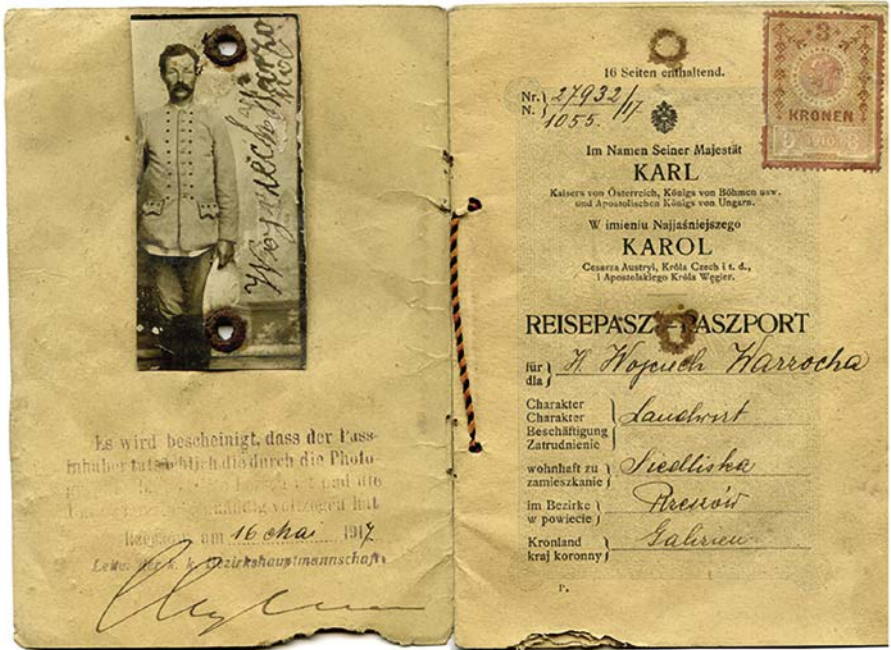 Wojciech
Es wird bescheinigt, dass der Pass-
inhaber tatsächlich die durch die Photo-
und die
eigenhändig vollzogen hat
Rzeszów, am 16 Mai 1917
Leiter der k. k. Bezirkshauptmannschaft
16 Seiten enthaltend.
Nr. } 27932/17
N. } 1055.
3
KRONEN
1910
Im Namen Seiner Majestät
KARL
Kaisers von Österreich, Königs von Böhmen usw.
und Apostolischen Königs von Ungarn.
W imieniu Najjaśniejszego
KAROL
Cesarza Austryi, Króla Czech i t. d.,
i Apostolskiego Króla Węgier.
REISEPASZ–PASZPORT
für } H. Wojciech Warzocha
dla }
Charakter
Charakter
Beschäftigung } Landwirt
Zatrudnienie
wohnhaft zu } Siedliska
zamieszkanie
im Bezirke } Rzeszów
w powiecie
Kronland } Galizien
kraj koronny
P.